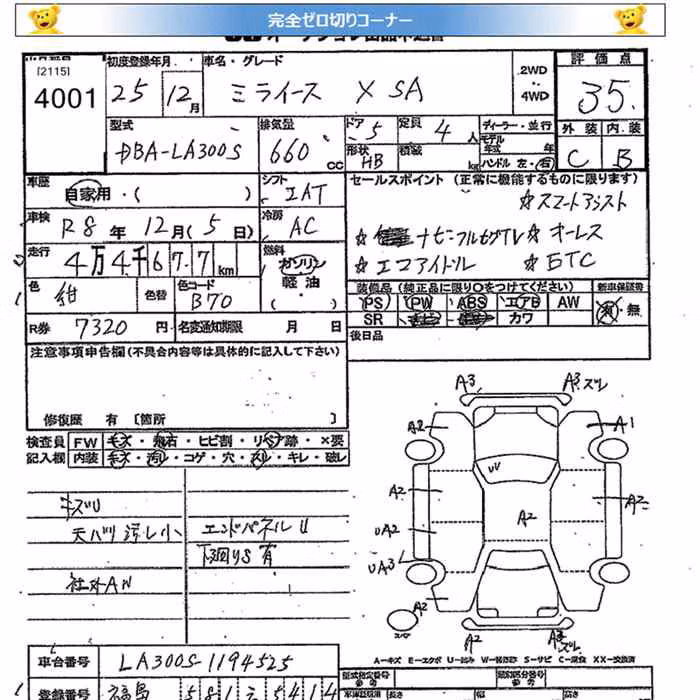 完全ゼロ切りコーナー
[2115]
4001
初度登録年月
25 12月
車名・グレード
ミライース X SA
2WD
4WD
評価点
3.5
外装 内装
C B
型式
DBA-LA300S
排気量
660 CC
ドア 5
形状 HB
定員 4人
積載 kg
ディーラー・並行
モデル年式 年
ハンドル 左・右
車歴
自家用・( )
シフト
IAT
セールスポイント (正常に機能するものに限ります)
☆スマートアシスト
☆ナビ-フルセグTV ☆オーレス
☆エコアイドル ☆ETC
車検
R8年 12月 (5日)
冷房
AC
走行
4万4千677km
燃料
ガソリン
軽油
( )
色
紺
色替
色コード
B70
装備品 (純正品に限り○をつけてください)
新車保証書
PS PW ABS エアB AW
SR ナビ カワ
有・無
R券 7320円
名変通知期限 月 日
後日品
注意事項申告欄(不具合内容等は具体的に記入して下さい)
修復歴 有 〔箇所 〕
検査員 FW キズ・飛石・ヒビ割・リペア跡・×要
記入欄 内装 キズ・汚レ・コゲ・穴・スレ・キレ・破レ
キズU
天バリ汚レ小 エンドパネルU
下廻りS有
社外AW
A3 A3ズレ
A2 A1
UV
A2 A2 A2
UA2
UA3
A2
スペア
A2 A3ズレ
A-キズ E-エクボ U-凹み W-補修跡 S-サビ C-腐食 XX-交換済
車台番号 LA300S-1194525
登録番号 福島 581